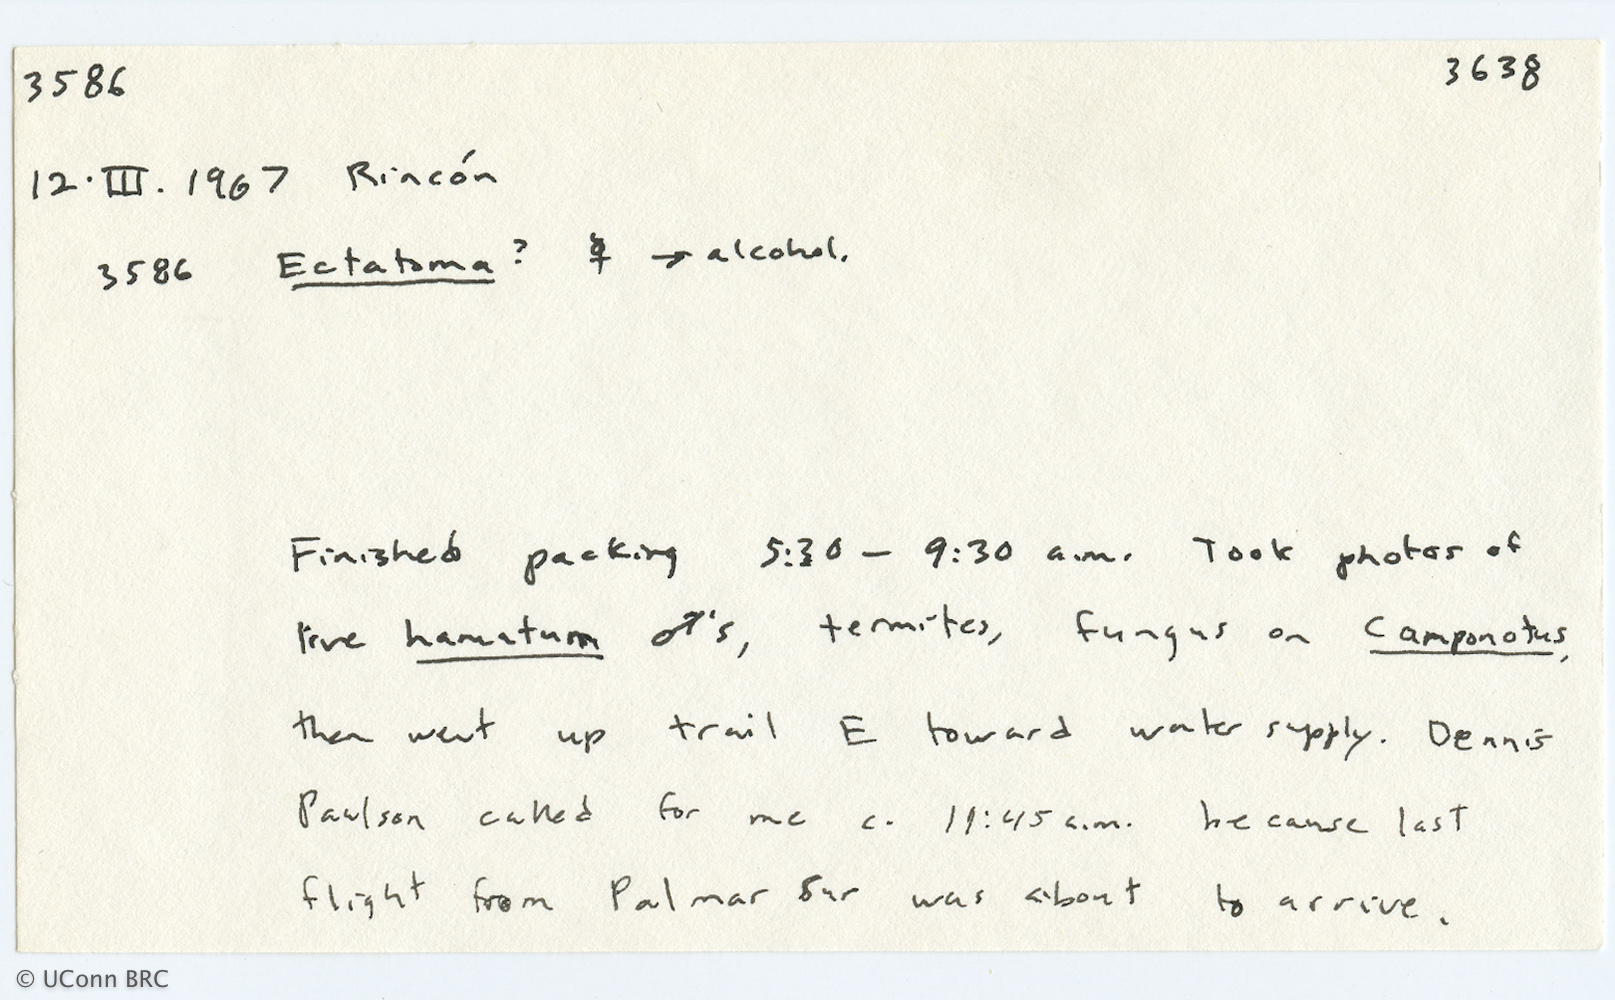 3586 3638
12.III.1967 Rincón
3586 Ectatoma? → alcohol.
Finished packing 5:30 – 9:30 a.m. Took photos of
live hamatum ♂'s, termites, fungus on Camponotus,
then went up trail E toward water supply. Dennis
Paulson called for me c. 11:45 a.m. because last
flight from Palmar Sur was about to arrive.
© UConn BRC